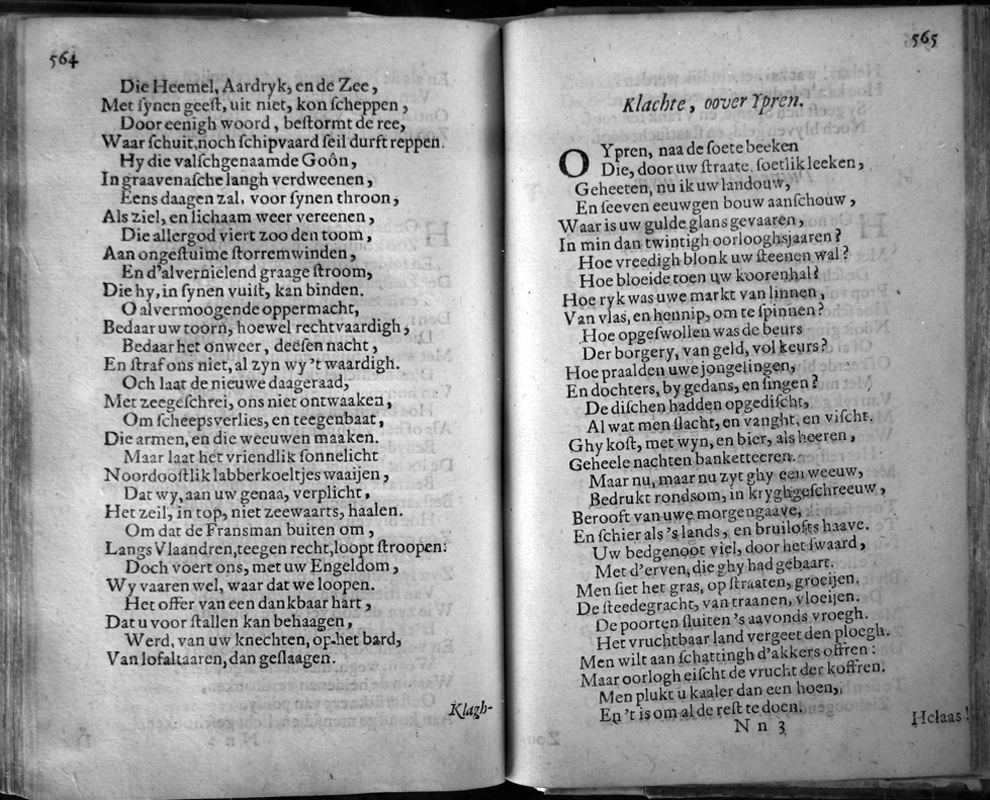 564
Die Heemel, Aardryk, en de Zee,
Met ſynen geeſt, uit niet, kon ſcheppen,
Door eenigh woord, beſtormt de ree,
Waar ſchuit, noch ſchipvaard ſeil durft reppen.
Hy die valſchgenaamde Goôn,
In graavenaſche langh verdweenen,
Eens daagen zal, voor ſynen throon,
Als ziel, en lichaam weer vereenen,
Die allergod viert zoo den toom,
Aan ongeſtuime ſtorremwinden,
En d'alvernielend graage ſtroom,
Die hy, in ſynen vuiſt, kan binden.
O alvermoogende oppermacht,
Bedaar uw toorn, hoewel rechtvaardigh,
Bedaar het onweer, deeſen nacht,
En ſtraf ons niet, al zyn wy 't waardigh.
Och laat de nieuwe daageraad,
Met zeegeſchrei, ons niet ontwaaken,
Om ſcheepsverlies, en teegenbaat,
Die armen, en die weeuwen maaken.
Maar laat het vriendlik ſonnelicht
Noordooſtlik labberkoeltjes waaijen,
Dat wy, aan uw genaa, verplicht,
Het zeil, in top, niet zeewaarts, haalen.
Om dat de Fransman buiten om,
Langs Vlaandren, teegen recht, loopt ſtroopen:
Doch voert ons, met uw Engeldom,
Wy vaaren wel, waar dat we loopen.
Het offer van een dankbaar hart,
Dat u voor ſtallen kan behaagen,
Werd, van uw knechten, op het bard,
Van lofaltaaren, dan geſlaagen.
Klagh-
565
Klachte, oover Ypren.
O Ypren, naa de ſoete beeken
Die, door uw ſtraate, ſoetlik leeken,
Geheeten, nu ik uw landouw,
En ſeeven eeuwgen bouw aanſchouw,
Waar is uw gulde glans gevaaren,
In min dan twintigh oorlooghsjaaren?
Hoe vreedigh blonk uw ſteenen wal?
Hoe bloeide toen uw koorenhal?
Hoe ryk was uwe markt van linnen,
Van vlas, en hennip, om te ſpinnen?
Hoe opgeſwollen was de beurs
Der borgery, van geld, vol keurs?
Hoe praalden uwe jongelingen,
En dochters, by gedans, en ſingen?
De diſchen hadden opgediſcht,
Al wat men ſlacht, en vanght, en viſcht.
Ghy koſt, met wyn, en bier, als heeren,
Geheele nachten banketteeren.
Maar nu, maar nu zyt ghy een weeuw,
Bedrukt rondsom, in kryghgeſchreeuw,
Berooft van uwe morgengaave,
En ſchier als 's lands, en bruilofts haave.
Uw bedgenoot viel, door het ſwaard,
Met d'erven, die ghy had gebaart.
Men ſiet het gras, op ſtraaten, groeijen.
De ſteedegracht, van traanen, vloeijen.
De poorten ſluiten 's aavonds vroegh.
Het vruchtbaar land vergeet den ploegh.
Men wilt aan ſchattingh d'akkers offren:
Maar oorlogh eiſcht de vrucht der koffren.
Men plukt u kaaler dan een hoen,
En 't is om al de reſt te doen.
N n 3
Helaas!